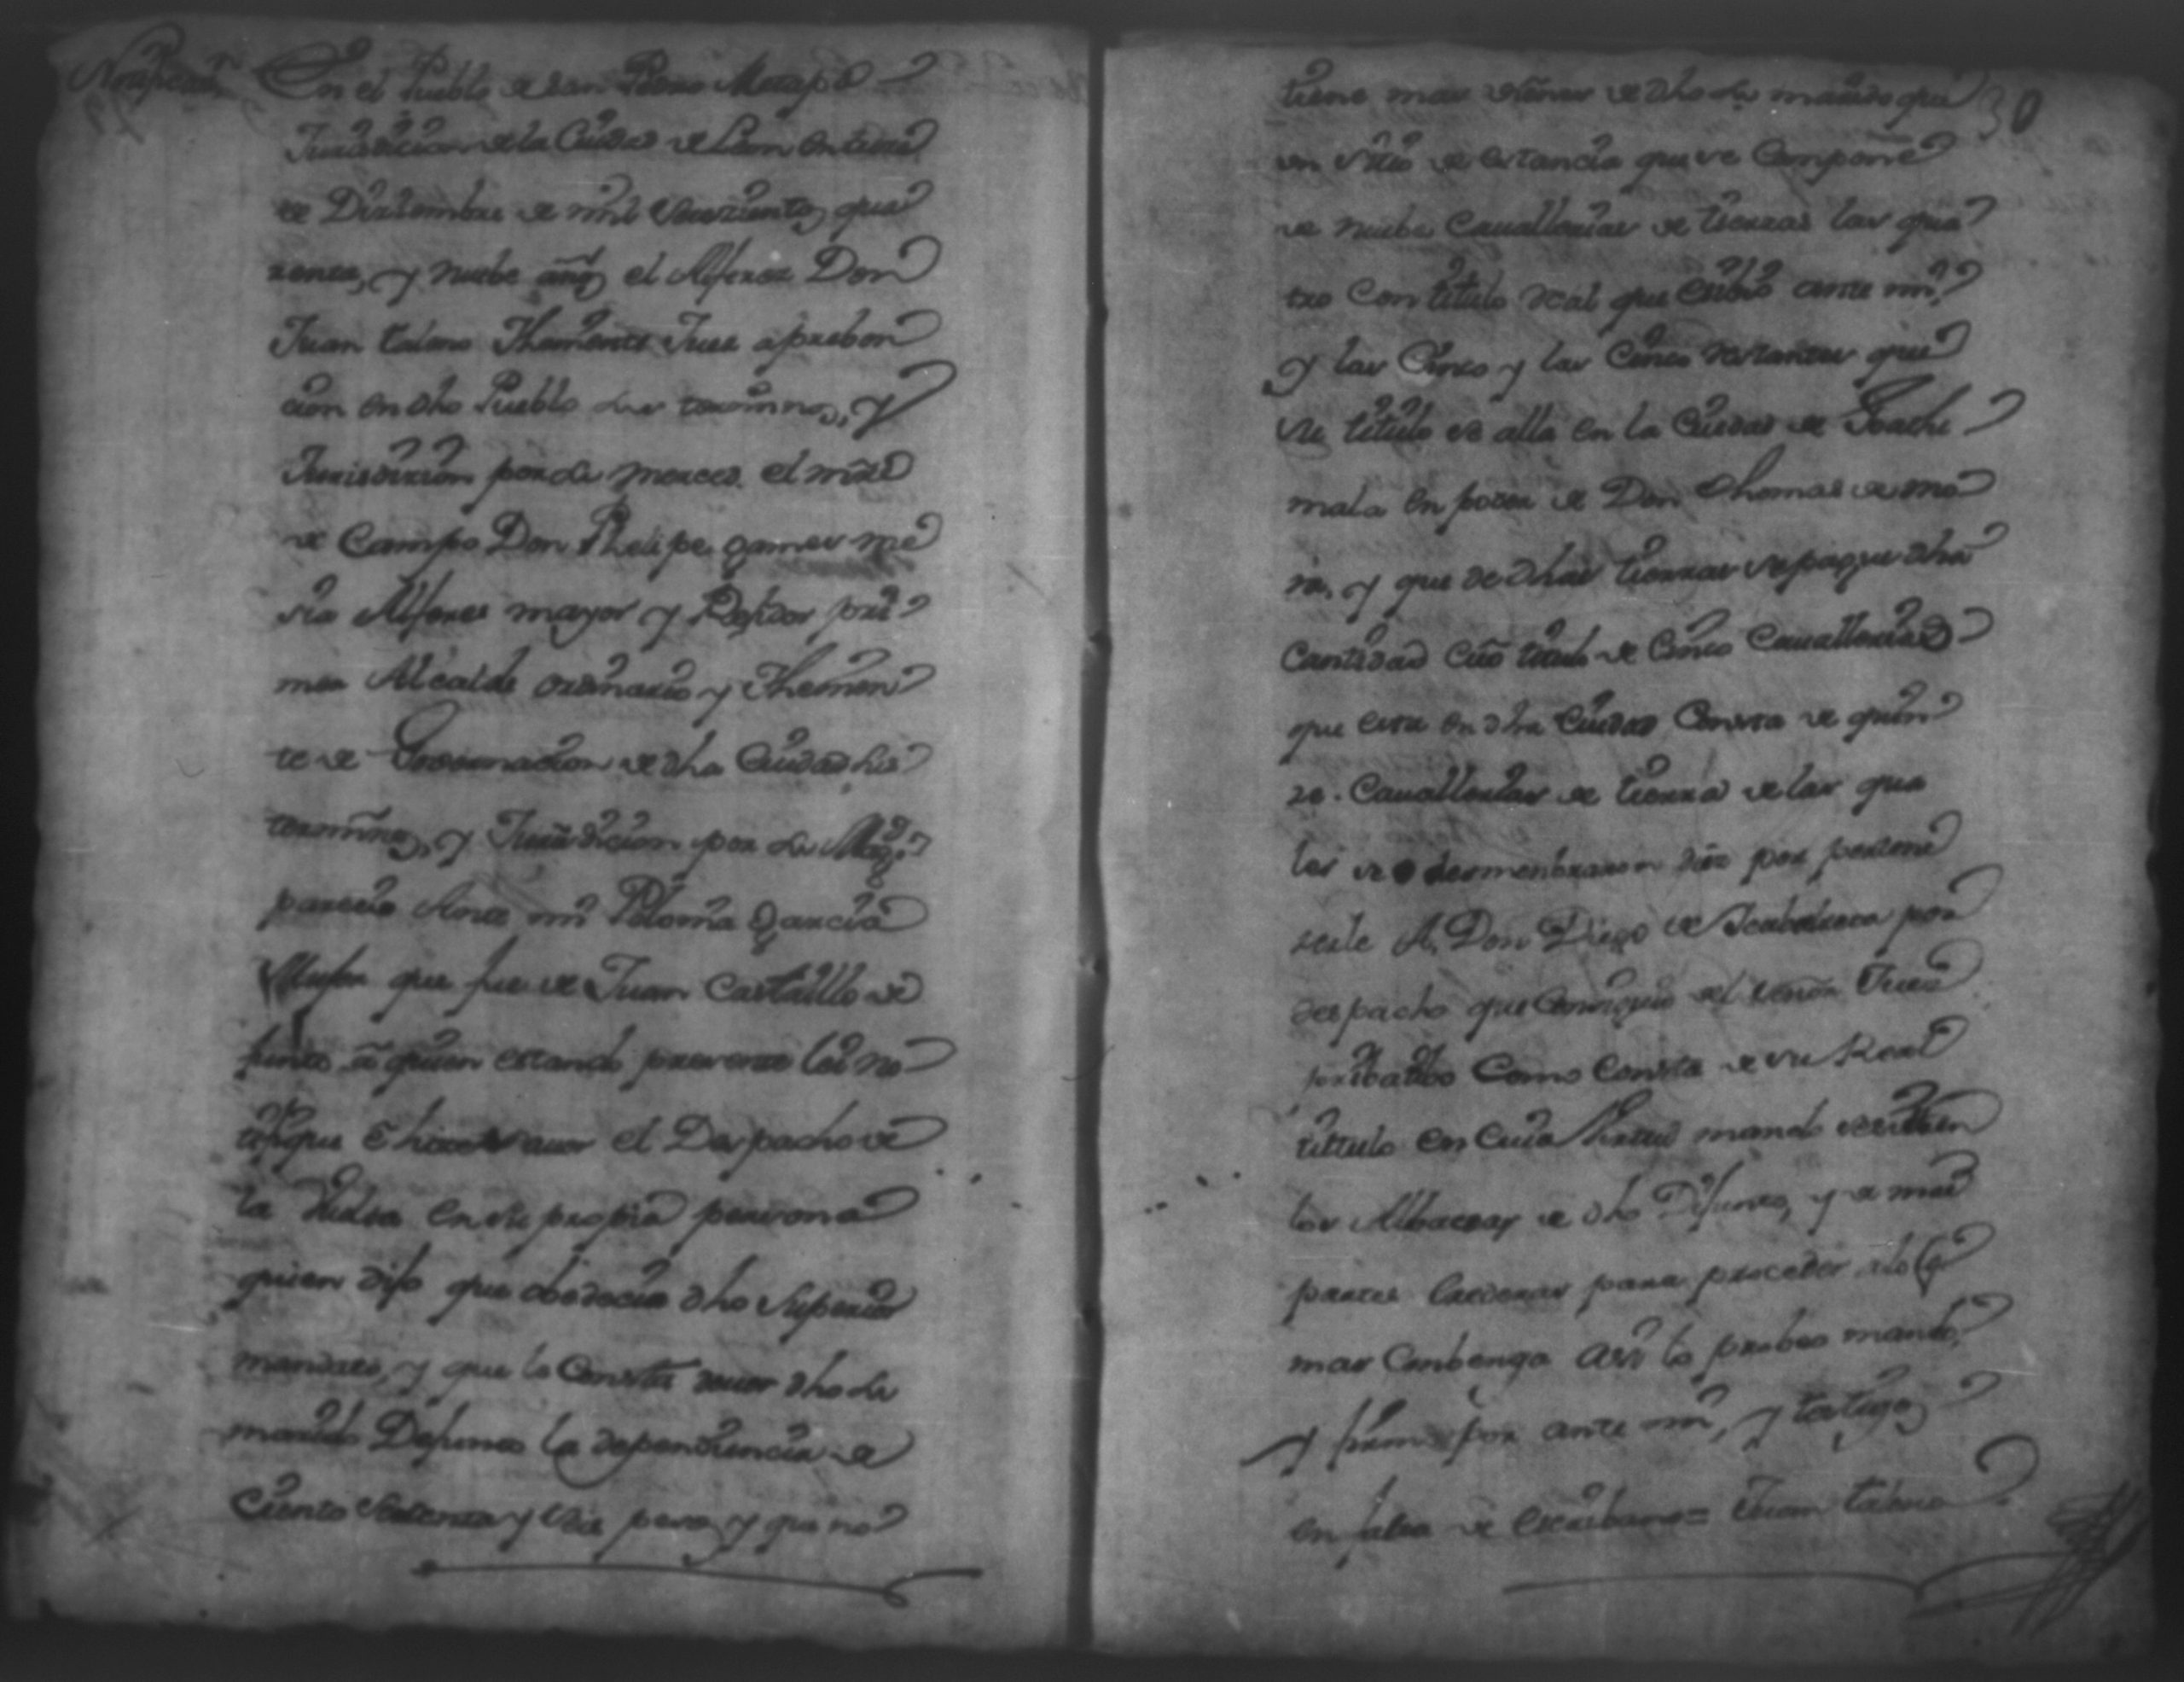 Notificaᵒⁿ En el Pueblo de San Pedro Metapa
Jurisdicion de la Ciudad de Leon en trese
de Diziembre de mil Setezientos, qua
renta, y nuebe años el Alferez Don
Juan taleno Theniente Juez a prebon
cion en dho Pueblo sus terminos, y
Jurisdizion por su merced el mñre
de Campo Don Phelipe games me
sia Alferes mayor y Rexidor pri
mer Alcalde ordinario y Thenien
te de Governacion de dha Ciudad sus
terminos, y Jurisdicion por su Magᵈ.
parecio Ante mi Paloma Garcia
Mujer que fue de Juan Castillo de
funto a quien estando presente lei no
tifique e hize saver el Despacho de
la buelta en su propia persona
quien dijo que obedecia dho Superior
mandato, y que le Consta dever dho su
marido Defunto la dependiencia de
Ciento Setenta y seis pesos y que no
30
tiene mas vienes de dho su marido que
un sitio de estancia que se Compone
de nuebe Cavallerias de tierras las qua
tro con titulo Real que exibio ante mi
y las Cinco y las Cinco restantes que
su titulo se alla en la Ciudad de Goathe
mala en poder de Don thomas de me
na, y que de dhas tierras se pague dha
Cantidad Cuio titulo de Cinco Cavallerias
que esta en dha Ciudad Consta de quin
ze. Cavallerias de tierra de las qua
les se desmenbraron diez por pertene
serle A Don Diego de Scabaleta por
despacho que Consiguio del Señor Juez
pribatibo Como Consta de su Real
titulo en Cuia Virtud mando se citen
los Albaceas de dho Difunto, y de mas
partes Erederas para proceder a lo q
mas Conbenga Assi lo probeo mando,
y firmo por ante mi, y testigos
en falta de Escribano= Juan taleno